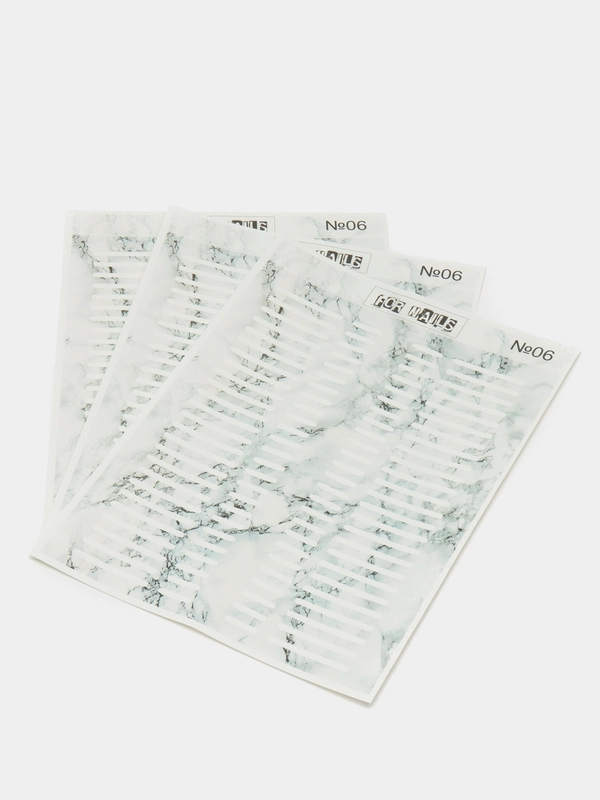 №06
NAILS
№06
FOR NAILS
№06